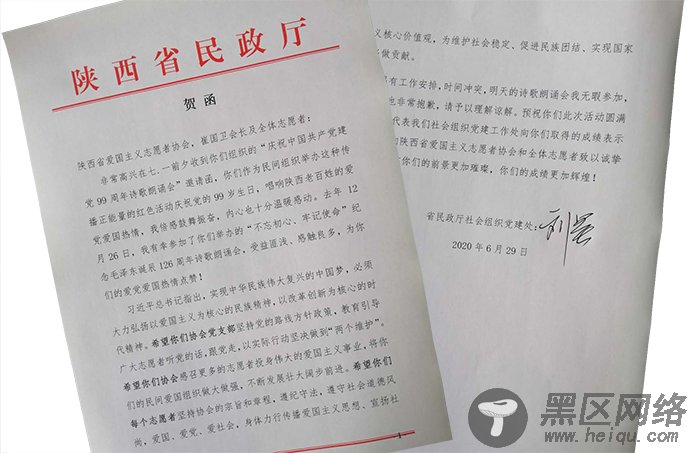 陕西省民政厅
贺函
陕西省爱国主义志愿者协会，崔国卫会长及全体志愿者：
非常高兴在七.一前夕收到你们组织的“庆祝中国共产党建
党99周年诗歌朗诵会”邀请函，你们作为民间组织举办这种传
播正能量的红色活动庆祝党的99岁生日，唱响陕西老百姓的爱
党爱国热情，我倍感鼓舞振奋，内心也十分温暖感动。去年12
月26日，我有幸参加了你们举办的“不忘初心、牢记使命”纪
念毛泽东诞辰126周年诗歌朗诵会，受益匪浅、感触良多，为你
们的爱党爱国热情点赞！
习近平总书记指出，实现中华民族伟大复兴的中国梦，必须
大力弘扬以爱国主义为核心的民族精神，以改革创新为核心的时
代精神。希望你们协会党支部坚持党的路线方针政策，教育引导
广大志愿者听党的话，跟党走，以实际行动坚决做到“两个维护”。
希望你们协会感召更多的志愿者投身伟大的爱国主义事业，将你
们的民间爱国组织做大做强，不断发展壮大阔步前进。希望你们
每个志愿者坚持协会的宗旨和章程，遵纪守法，遵守社会道德风
尚，爱国、爱党、爱社会，身体力行传播爱国主义思想、宣扬社
1
义核心价值观，为维护社会稳定、促进民族团结、实现国家
做贡献。
有工作安排，时间冲突，明天的诗歌朗诵会我无暇参加，
也非常抱歉，请予以理解谅解。预祝你们此次活动圆满
代表我们社会组织党建工作处向你们取得的成绩表示
陕西省爱国主义志愿者协会和全体志愿者致以诚挚
你们的前景更加璀璨，你们的成绩更加辉煌！
省民政厅社会组织党建处：
2020年6月29日
黑区网络
www.heiqu.com